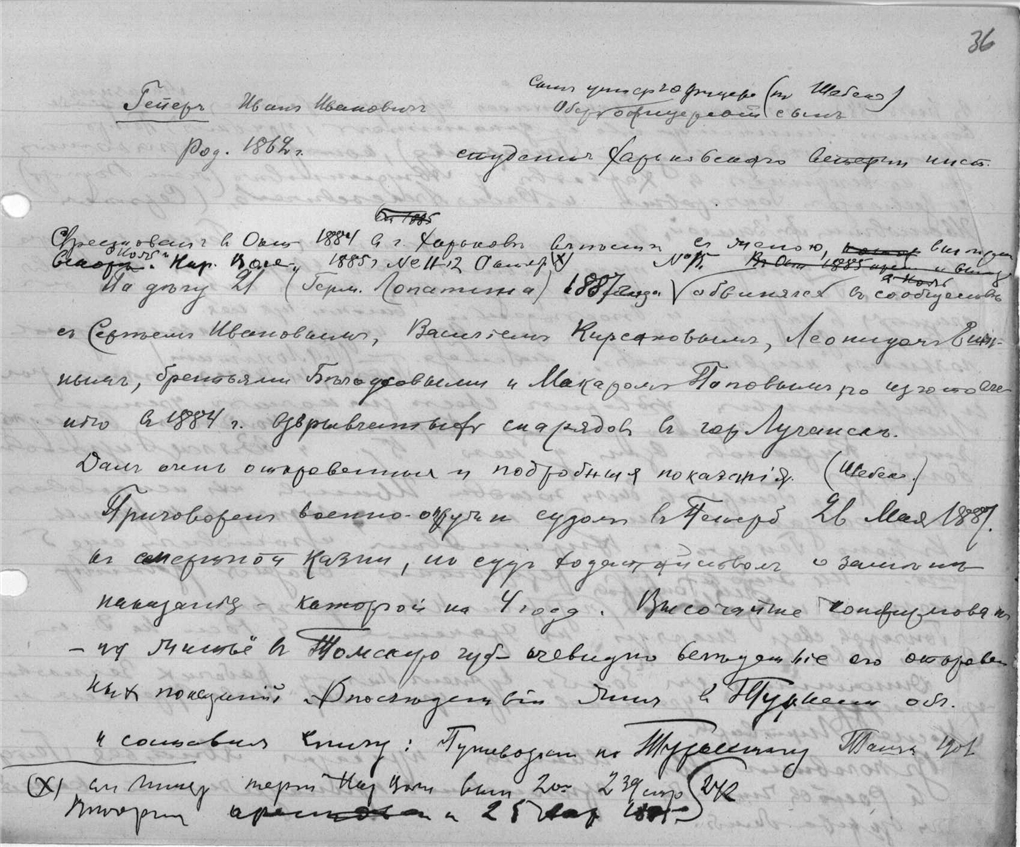 36
Гейеръ Иванъ Ивановичъ
Сынъ унтеръ офицера (по Шебеко)
Оберъ офицерскій сынъ
Род. 1862 г.
студентъ Харьковскаго ветерин инст.
Арестованъ в Окт 1884 в г. Харьковъ вместе съ женою,
Нар. Воли 1885 г №11-12 (X)
По делу 21 (Герм. Лопатина) 1887 года обвинялся въ сообществе
съ Сергеемъ Ивановымъ, Василиемъ Кирсановымъ, Леонидомъ
братьями и Макаромъ Поповымъ, по изготовле-
нию в 1884 г. взрывчатыхъ снарядовъ в гор Луганскъ.
Далъ очень откровенныя и подробныя показанія. (Шебеко)
Приговоренъ военно-окружн судомъ в Петерб 26 Мая 1887.
къ смертной казни, но судъ ходатайствовалъ о замене
наказанія каторгой на 4 года. Высочайше конфирмована
– на житьё в Томскую губ – очевидно вследствіе его откровен
ныхъ показаній. Впоследствіи жилъ в Туркест обл.
и составилъ книгу: Путеводитель по Туркестану Ташк 1901
(X) литер парт Нар Воли вып 2ой 239 стр 242
Вторично 25